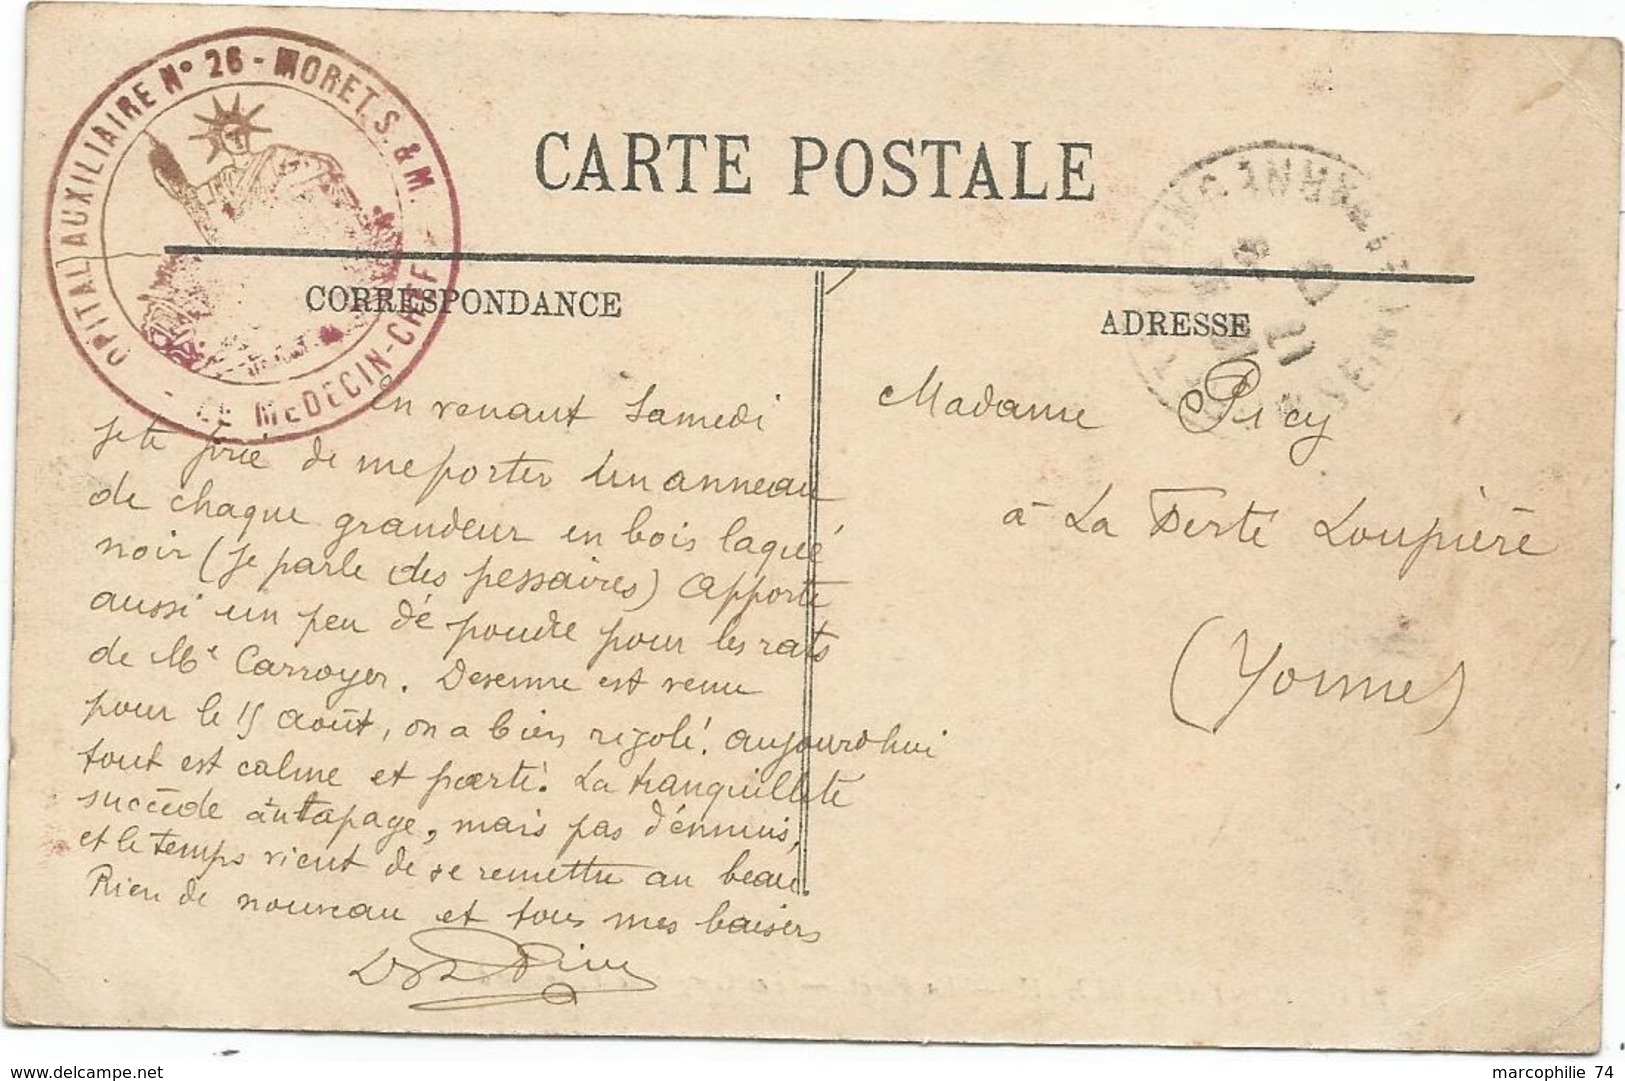 OPITAL AUXILIAIRE N° 26 - MORET. S. & M.
- LE MEDECIN-CHEF -
CARTE POSTALE
CORRESPONDANCE
ADRESSE
En venant Samedi
je te prie de me porter un anneau
de chaque grandeur en bois laqué
noir (je parle des pessaires) Apporte
aussi un peu de poudre pour les rats
de Me Carroyer. Desenne est venu
pour le 15 août, on a bien rigolé. Aujourd'hui
tout est calme et parti. La tranquillité
succède au tapage, mais pas d'ennuis,
et le temps vient de se remettre au beau.
Rien de nouveau et tous mes baisers
Madame Picy
à La Ferté Loupière
(Yonne)
marcophilie 74